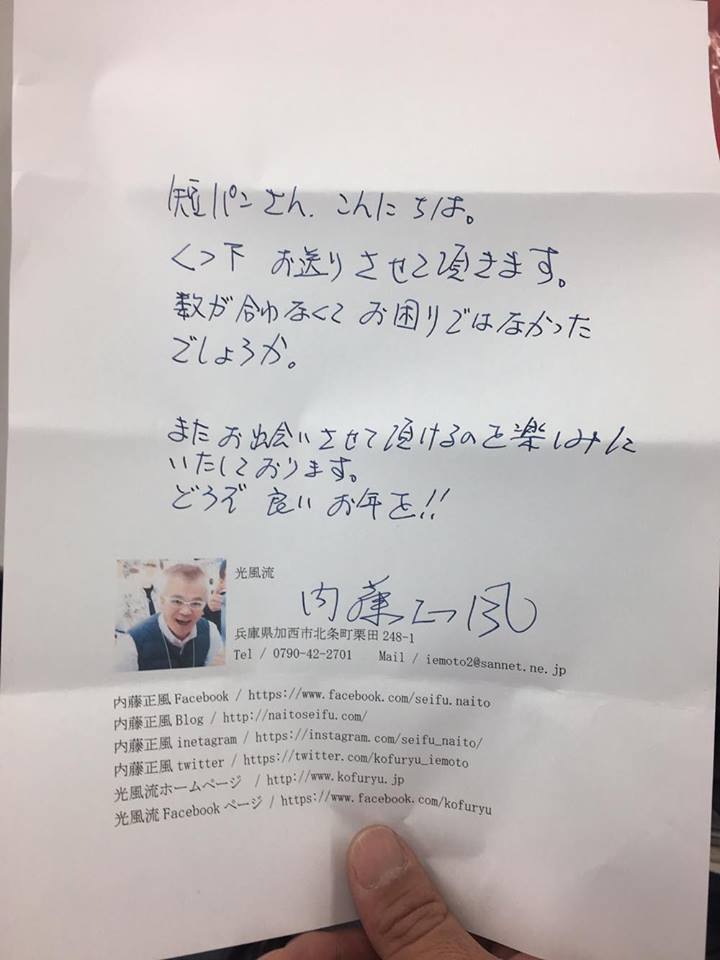 短パンさん、こんにちは。
くつ下 お送りさせて頂きます。
数が合わなくてお困りではなかった
でしょうか。
またお出会いさせて頂けるのを楽しみに
いたしております。
どうぞ 良い お年を!!
光風流
内藤正風
兵庫県加西市北条町栗田 248-1
Tel / 0790-42-2701 Mail / iemoto2@sannet.ne.jp
内藤正風 Facebook / https://www.facebook.com/seifu.naito
内藤正風 Blog / http://naitoseifu.com/
内藤正風 inetagram / https://instagram.com/seifu_naito/
内藤正風 twitter / https://twitter.com/kofuryu_iemoto
光風流ホームページ / http://www.kofuryu.jp
光風流 Facebook ページ / https://www.facebook.com/kofuryu